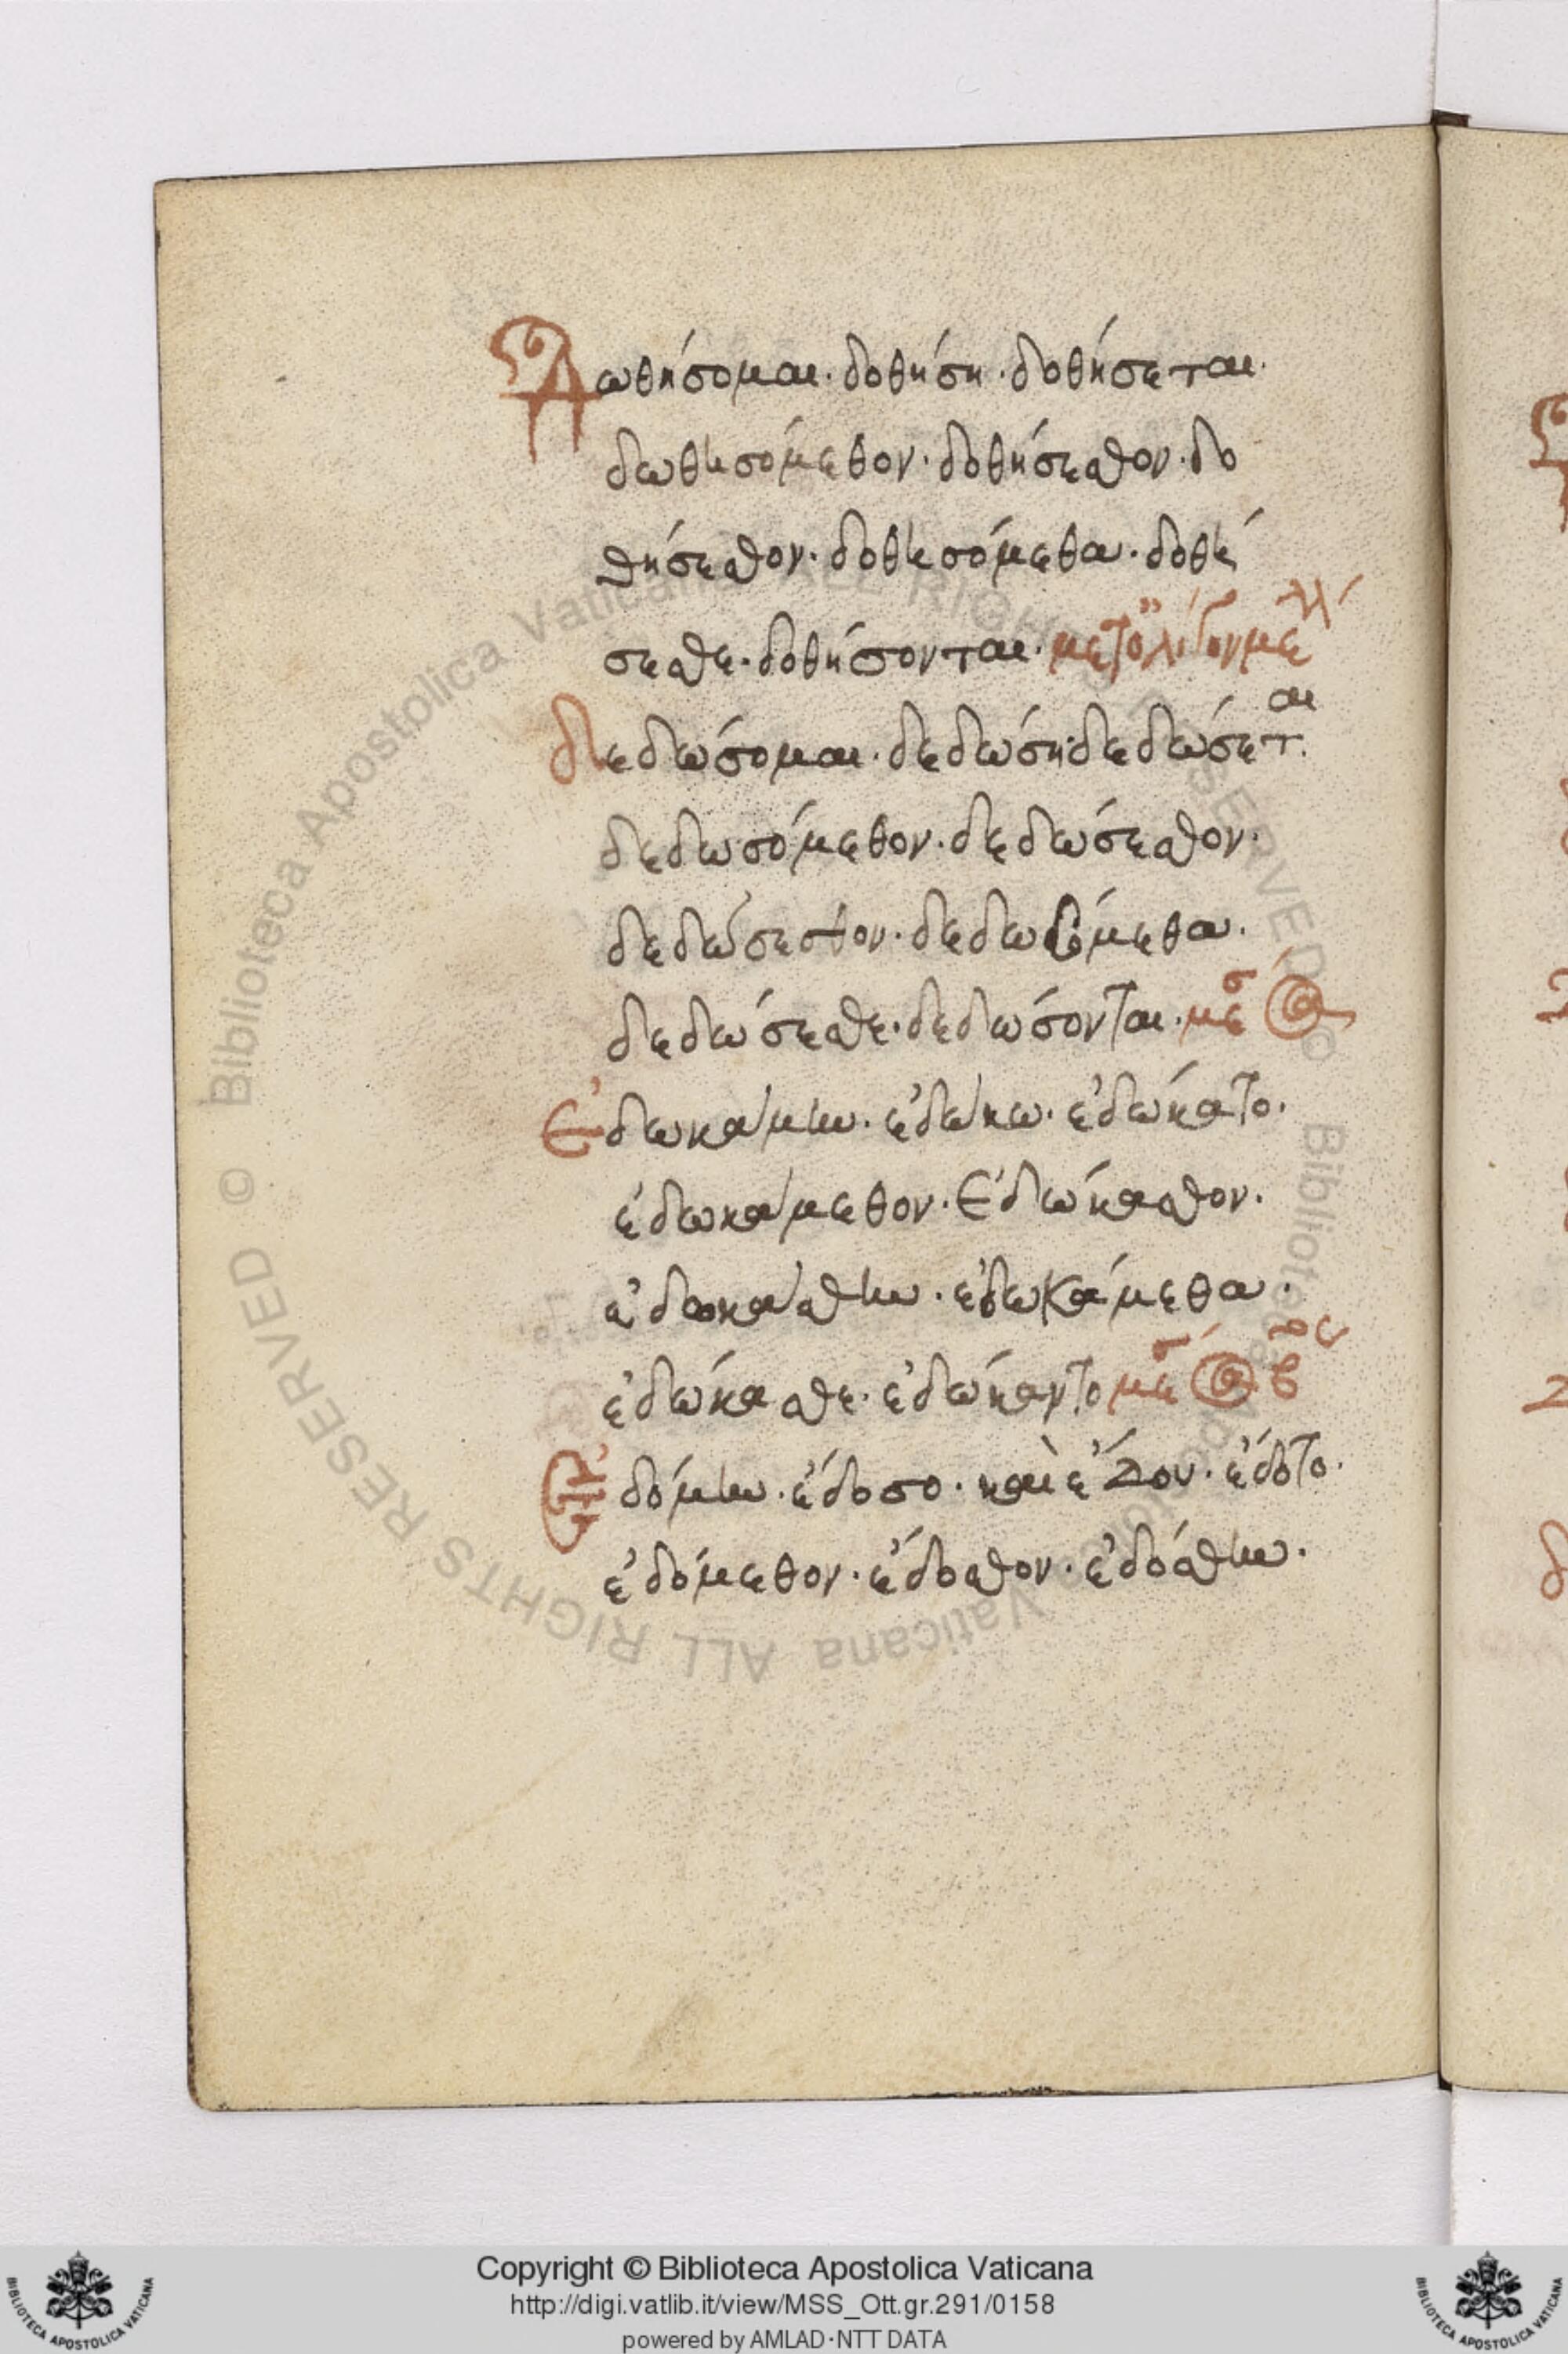 Δωθήσομαι· δοθήση· δοθήσεται·
δωθησόμεθον· δοθήσεσθον· δο
θήσεσθον· δοθησόμεθα· δοθή
σεσθε· δοθήσονται· μετ' ὀλίγον μέλλ
δεδώσομαι· δεδώση· δεδώσεται·
δεδωσόμεθον· δεδώσεσθον·
δεδώσεσθον· δεδωσόμεθα·
δεδώσεσθε· δεδώσονται· μέσ
Ἐδωκάμην· ἐδώκω· ἐδώκατο·
ἐδωκάμεθον· Ἐδώκασθον·
ἐδωκάσθην· ἐδωκάμεθα·
ἐδώκασθε· ἐδώκαντο μέσ β
Ἐδόμην· ἔδοσο· καὶ ἔδου· ἔδοτο·
ἐδόμεθον· ἔδοσθον· ἐδόσθην·
Copyright © Biblioteca Apostolica Vaticana
http://digi.vatlib.it/view/MSS_Ott.gr.291/0158
powered by AMLAD·NTT DATA